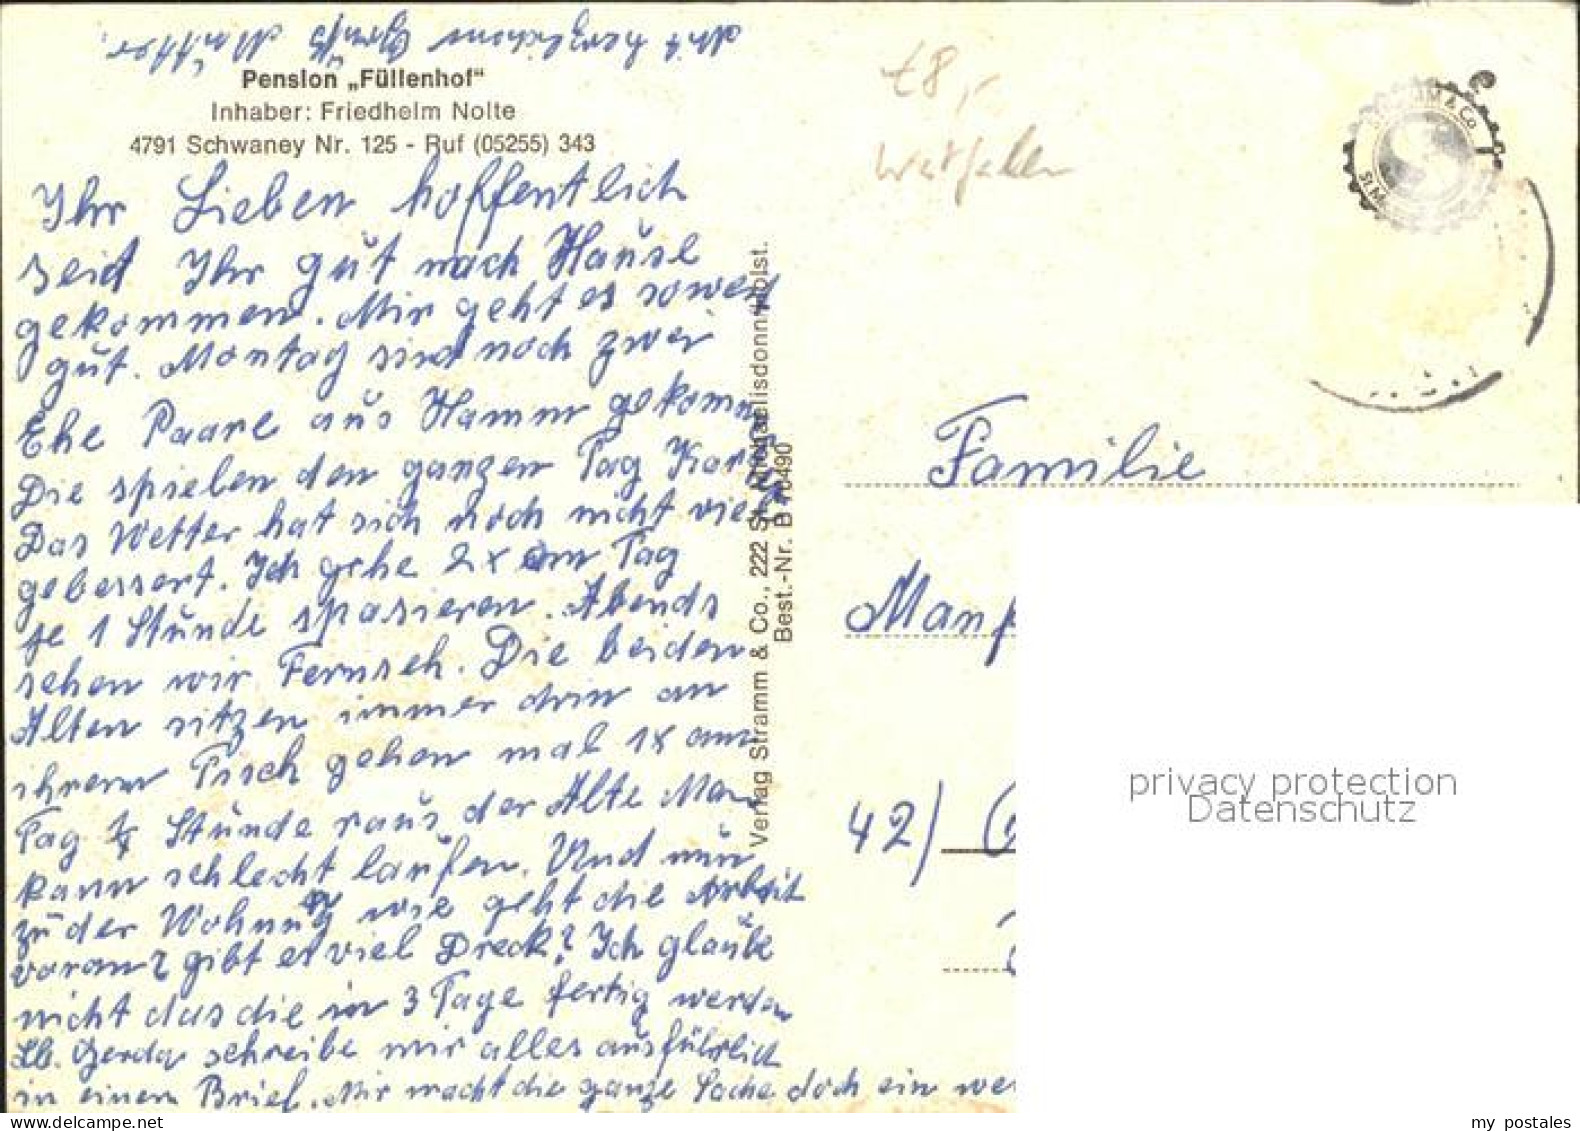 Mit herzlichem Gruß Mutter.
Pension „Füllenhof“
Inhaber: Friedhelm Nolte
4791 Schwaney Nr. 125 - Ruf (05255) 343
Ihr Lieben hoffentlich
seid Ihr gut nach Hause
gekommen. Mir geht es soweit
gut. Montag sind noch zwei
Ehe Paare aus Hamm gekomm
Die spielen den ganzen Tag Kart
Das Wetter hat sich noch nicht viel
gebessert. Ich gehe 2x am Tag
je 1 Stunde spasieren. Abends
sehen wir Fernseh. Die beiden
Alten sitzen immer drin an
ihrem Tisch gehen mal 1x am
Tag Stunde raus der Alte Man
kann schlecht laufen. Und nun
zu der Wohnung wie geht die Arbeit
voran? gibt es viel Dreck? Ich glaube
nicht das die in 3 Tage fertig werden
Lb. Gerda schreibe mir alles ausführlich
in einem Brief. Mir macht die ganze Sache doch ein we
Verlag Stramm & Co., 222 St. Michaelisdonn/Holst.
Best.-Nr. B
18,-
Westfalen
STRAMM & Co.
St. M
Familie
Manf
42)
privacy protection
Datenschutz
my postales